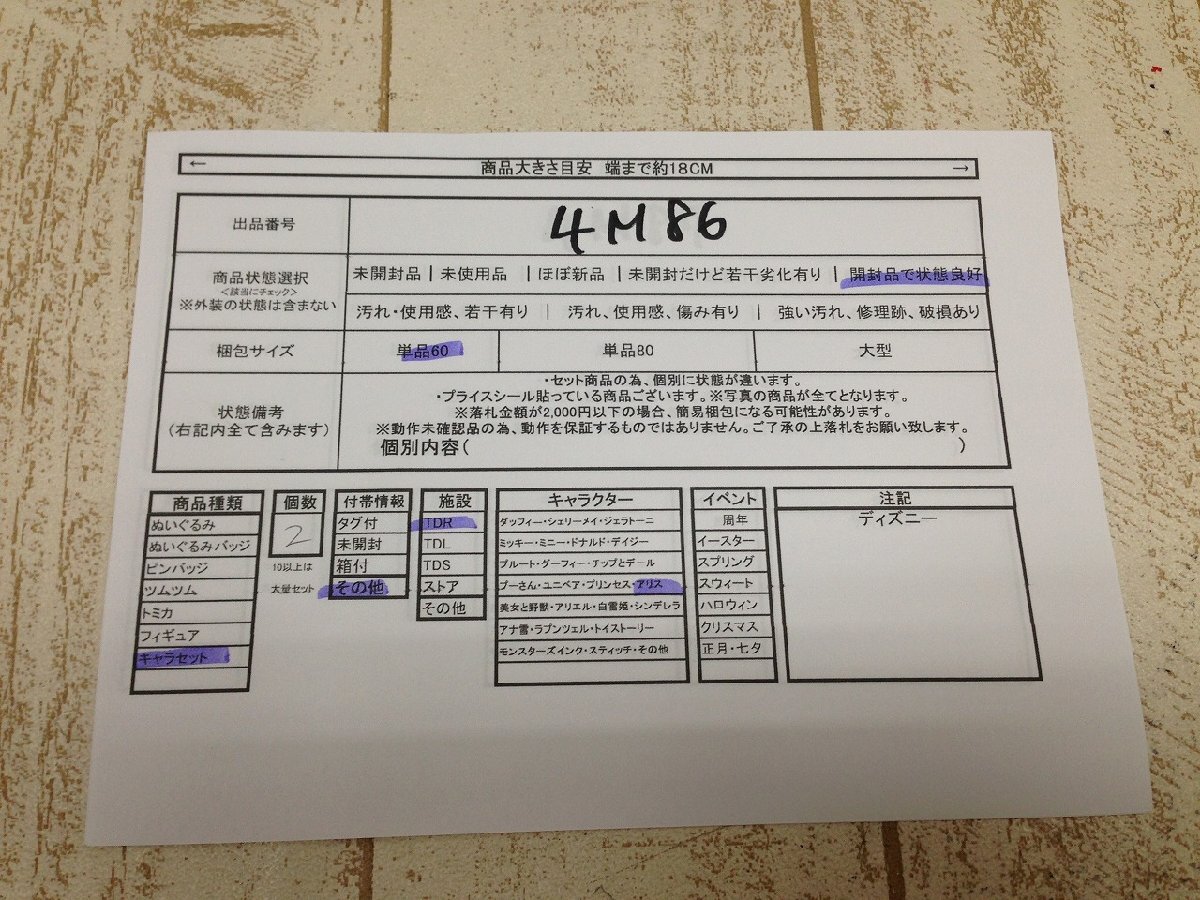 ← 商品大きさ目安 端まで約18CM →
出品番号 4M86
商品状態選択
<該当にチェック>
※外装の状態は含まない
未開封品 | 未使用品 | ほぼ新品 | 未開封だけど若干劣化有り | 開封品で状態良好
汚れ・使用感、若干有り | 汚れ、使用感、傷み有り | 強い汚れ、修理跡、破損あり
梱包サイズ 単品60 単品80 大型
状態備考
(右記内全て含みます)
・セット商品の為、個別に状態が違います。
・プライスシール貼っている商品ございます。※写真の商品が全てとなります。
※落札金額が2,000円以下の場合、簡易梱包になる可能性があります。
※動作未確認品の為、動作を保証するものではありません。ご了承の上落札をお願い致します。
個別内容( )
商品種類
ぬいぐるみ
ぬいぐるみバッジ
ピンバッジ
ツムツム
トミカ
フィギュア
キャラセット
個数
2
10以上は
大量セット
付帯情報
タグ付
未開封
箱付
その他
施設
TDR
TDL
TDS
ストア
その他
キャラクター
ダッフィー・シェリーメイ・ジェラトーニ
ミッキー・ミニー・ドナルド・デイジー
プルート・グーフィー・チップとデール
プーさん・ユニベア・プリンセス・アリス
美女と野獣・アリエル・白雪姫・シンデレラ
アナ雪・ラプンツェル・トイストーリー
モンスターズインク・スティッチ・その他
イベント
周年
イースター
スプリング
スウィート
ハロウィン
クリスマス
正月・七夕
注記
ディズニー